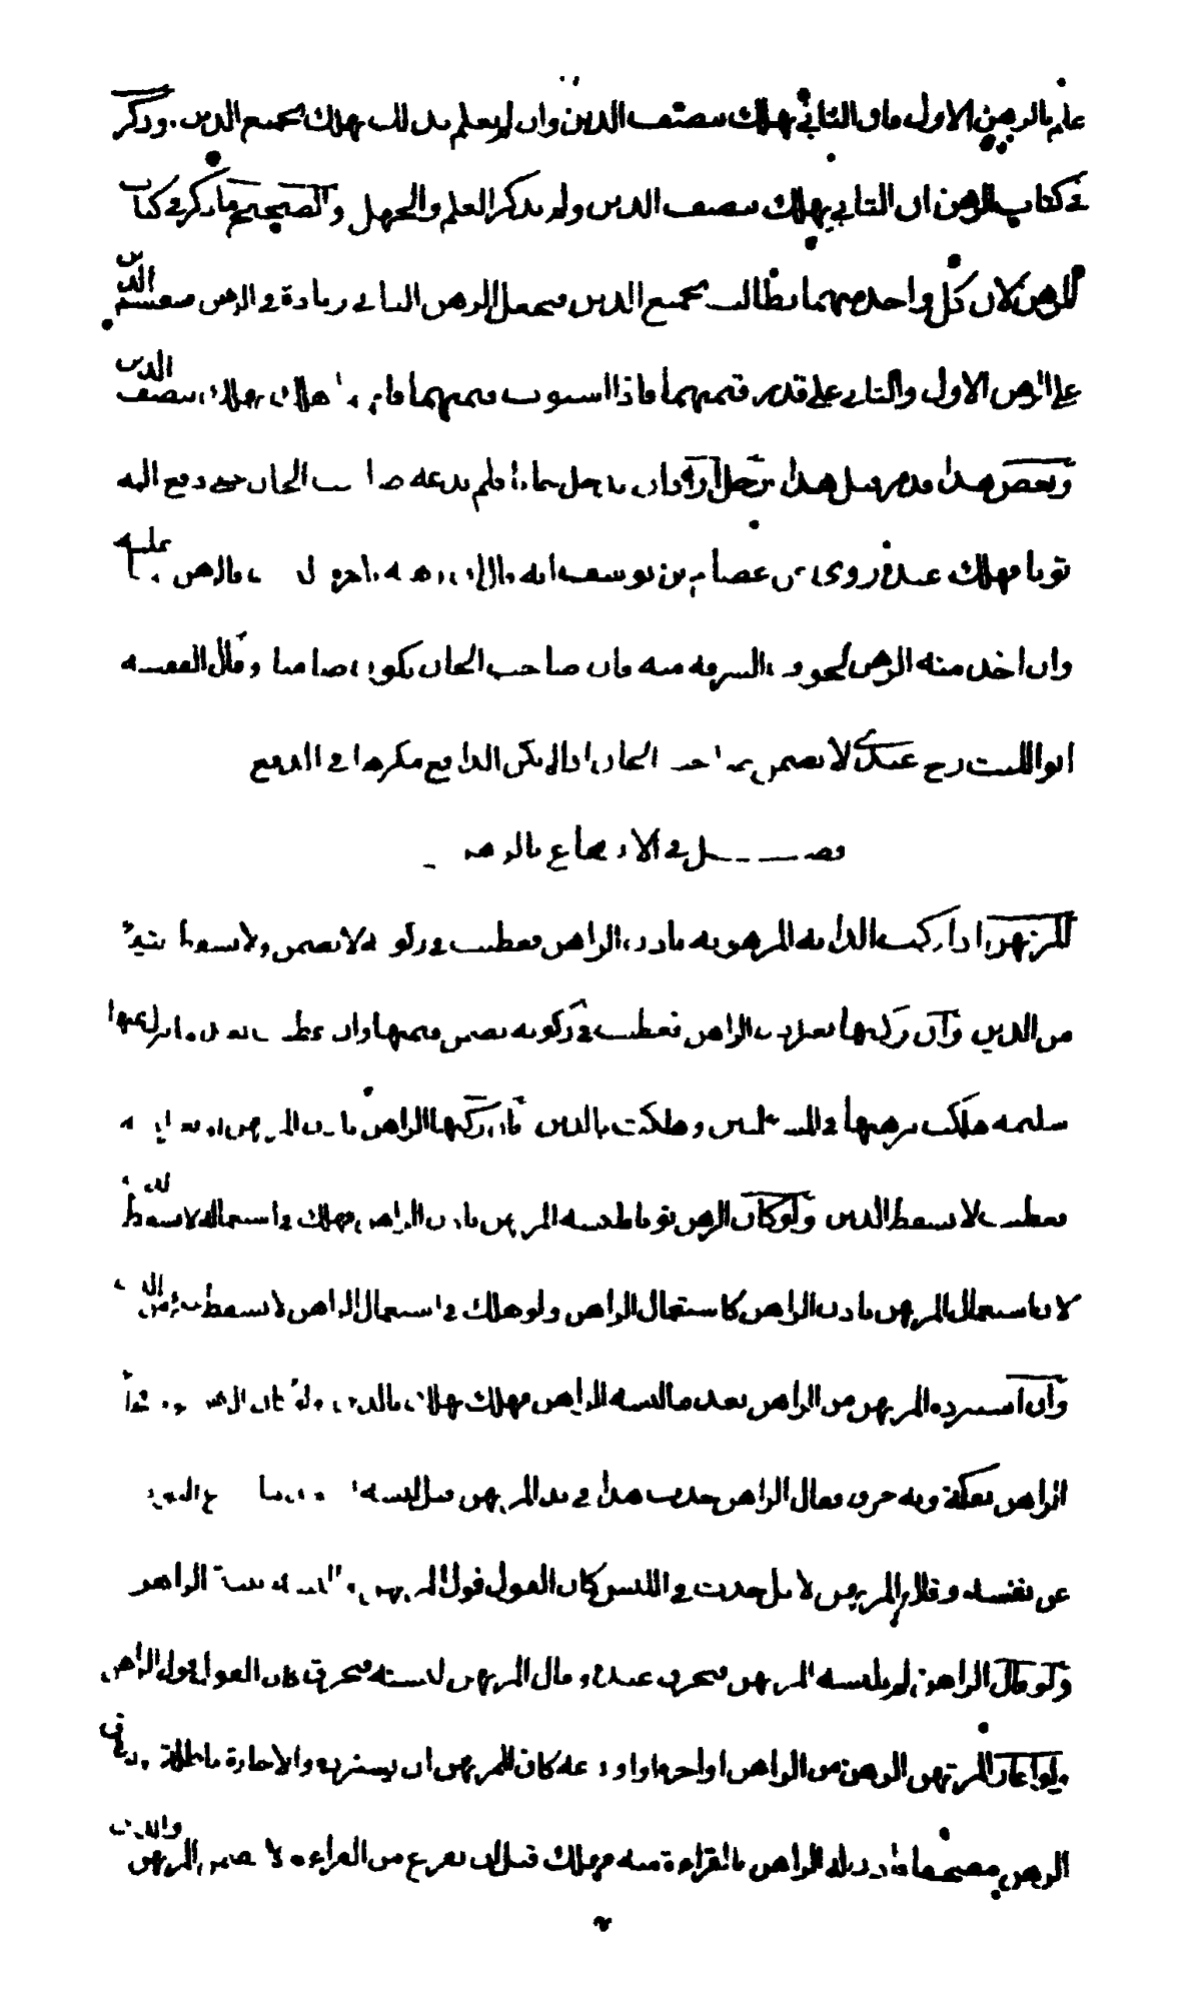 علم بالرهن الاول فان الثاني يهلك بنصف الدين وان لم يعلم بذلك يهلك بجميع الدين وذكر
في كتاب الرهن ان الثاني يهلك بنصف الدين ولم يذكر العلم والجهل والصحيح ما ذكر في كتاب
الرهن لان كل واحد منهما يطالب بجميع الدين فيجعل الرهن الثاني زيادة في الرهن فيقسم الدين
على الرهن الاول والثاني على قدر قيمتهما فاذا استوت قيمتهما هلك يهلك بنصف الدين
وبعض هذا قد مر قبل هذا رجل اراد ان يدخل خانا فلم يدعه الخان حتى دفع اليه
ثوبا فهلك عنده روي عن عصام بن يوسف انه قال فالرهن عليه
وان اخذ منه الرهن لخوف السرقة منه فان صاحب الخان يكون ضامنا وقال الفقيه
ابو الليث رح عندي لا يضمن الخان اذا لم يكن الدافع مكرها في الدفع
فصل في الانتفاع بالرهن
المرتهن اذا ركب الدابة المرهونة باذن الراهن فعطبت في ركوبه لا يضمن ولا يسقط شيء
من الدين وان ركبها بغير اذن الراهن فعطبت في ركوبه يضمن قيمتها وان عطبت بعد ما نزل عنها
سليمة هلكت برهنها في المسئلتين وهلكت بالدين فان ركبها الراهن باذن المرتهن
فعطبت لا يسقط الدين ولو كان الرهن ثوبا فلبسه المرتهن باذن الراهن فهلك في استعماله لا يسقط
لان استعمال المرتهن باذن الراهن كاستعمال الراهن ولو هلك في استعمال الراهن لا يسقط شيء من
وان استرده المرتهن من الراهن بعد ما لبسه الراهن فهلك يهلك بالدين ولو كان الرهن ثوبا
الراهن بفكه وبه خرق فقال الراهن حدث هذا في يد المرتهن قبل لبسه
عن نفسه وقال المرتهن لا بل حدث في اللبس كان القول قول المرتهن بينة الراهن
ولو قال الراهن لم يلبسه المرتهن فتخرق عنده وقال المرتهن لبسته فتخرق كان القول قول الراهن
ولو اعار المرتهن الرهن من الراهن او اجره او اودعه كان للمرتهن ان يسترده والاجارة باطلة
الرهن مصحفا فاذن له الراهن بالقراءة منه فهلك قبل ان يفرغ من القراءة لا يضمن المرتهن والدين